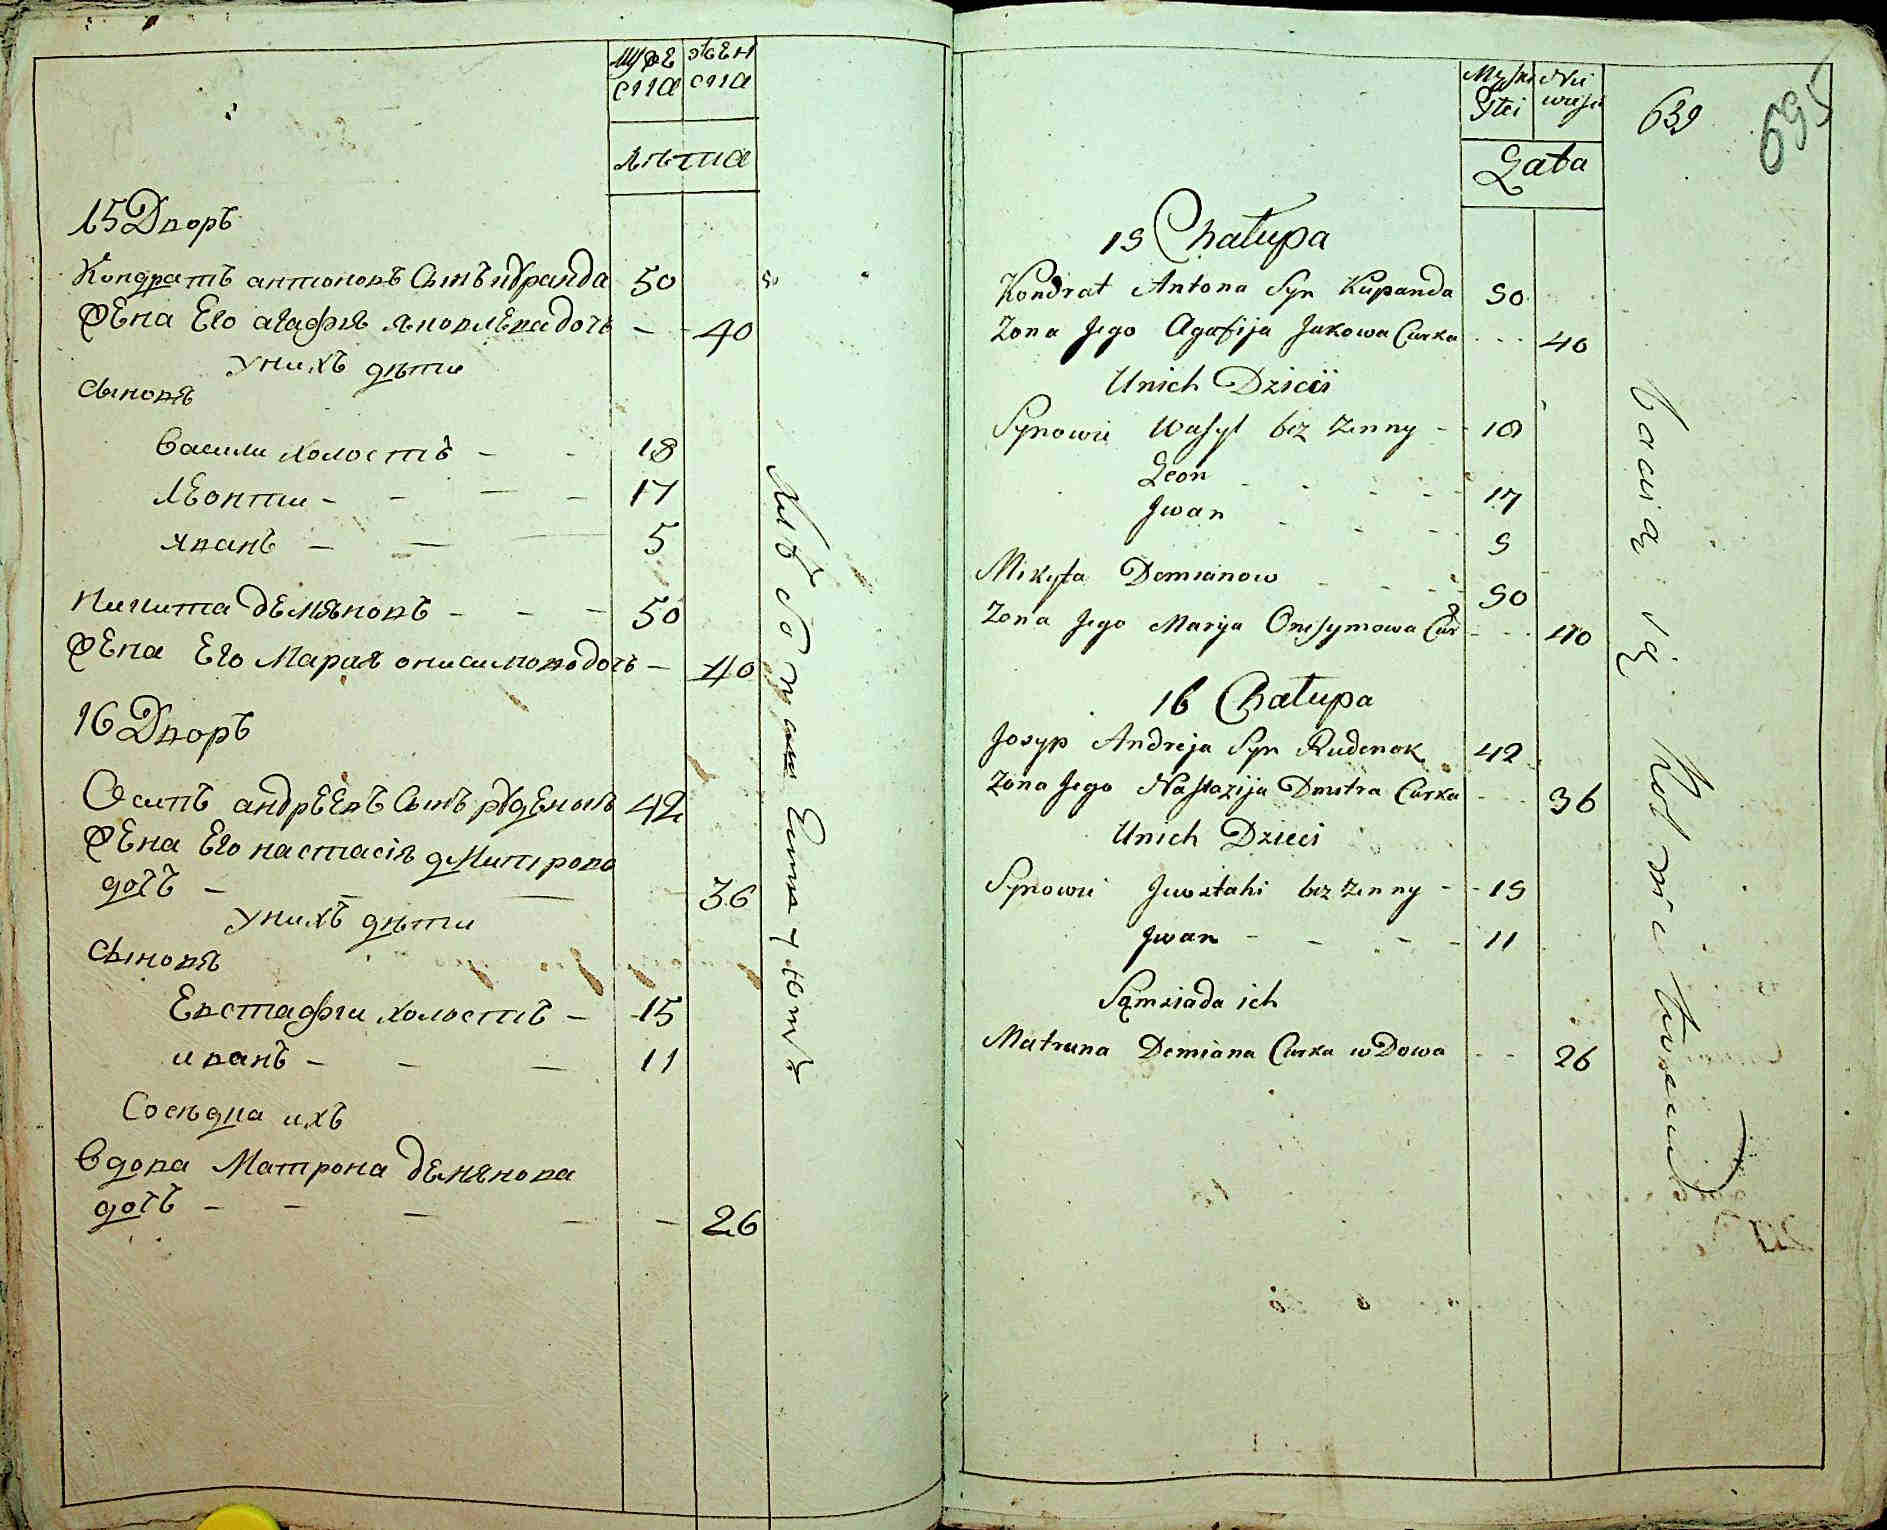 муже жен
ска ска
лѣта
15 Дворъ
Кондратъ антоновъ сынъ кȣранда 50
жена Его агафия яковлева дочь — 40
у нихъ дѣти
сыновя
василии холостъ - - 18
лЕонтии - - - - 17
иванъ - - 5
никита дЕмяновъ - - - 50
жена Его Мария онисимова дочь — 40
16 Дворъ
Осипъ андрЕЕвъ сынъ рȣдЕнокъ 42
жена Его настасiя дмитрова
дочь - - - - 36
у нихъ дѣти
сыновя
Евстафии холостъ - 15
иванъ - - - 11
Сосѣдка ихъ
вдова Матрона дЕмянова
дочь - - - - - 26
Хлѣбопашествуютъ
639
695
Męskei Niewiesc
Łata
15 Chałupa
Kondrat Antona Syn Kupanda 50
Żona Jego Agafija Jakowa Curka - - - 40
Unich Dzieci
Synowie Wasyl bez żenny - - 18
Leon - - - - 17
Jwan - - - 5
Mikyta Demianow - - - 50
Żona Jego Marija Onisymowa Cur - - - 40
16 Chałupa
Josyp Andreja Syn Rudenok 42
Żona Jego Nastazija Dmitra Curka - - - 36
Unich Dzieci
Synowie Jwstahi bez żenny - - 15
Jwan - - - - 11
Sąmsiada ich
Matruna Demiana Curka wDowa - - 26
bawią się